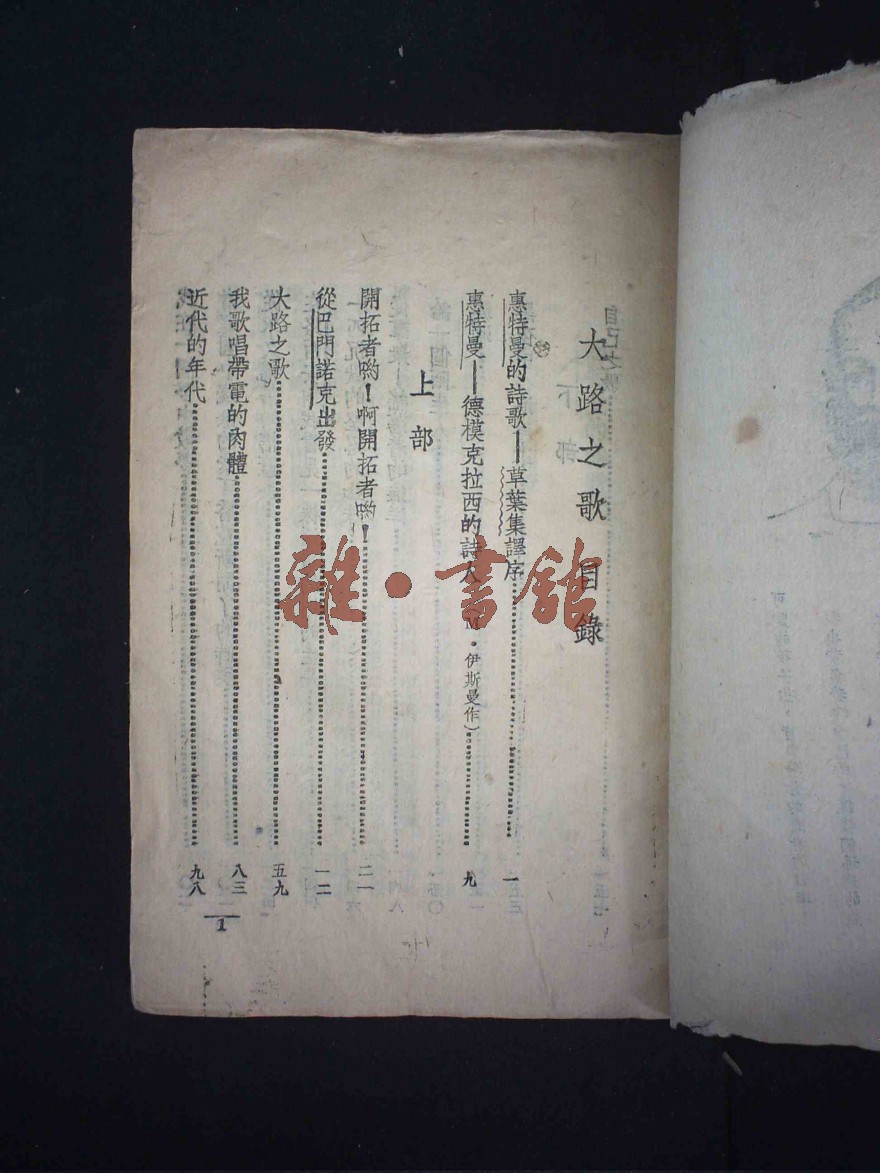 大路之歌 目錄
惠特曼的詩歌——草葉集譯序 一
惠特曼——德模克拉西的詩人 M·伊斯曼作） 九
上部
開拓者喲！啊開拓者喲！ 二一
從巴門諾克出發 一二
大路之歌 五九
我歌唱帶電的肉體 八三
近代的年代 九八
1
雜·書館